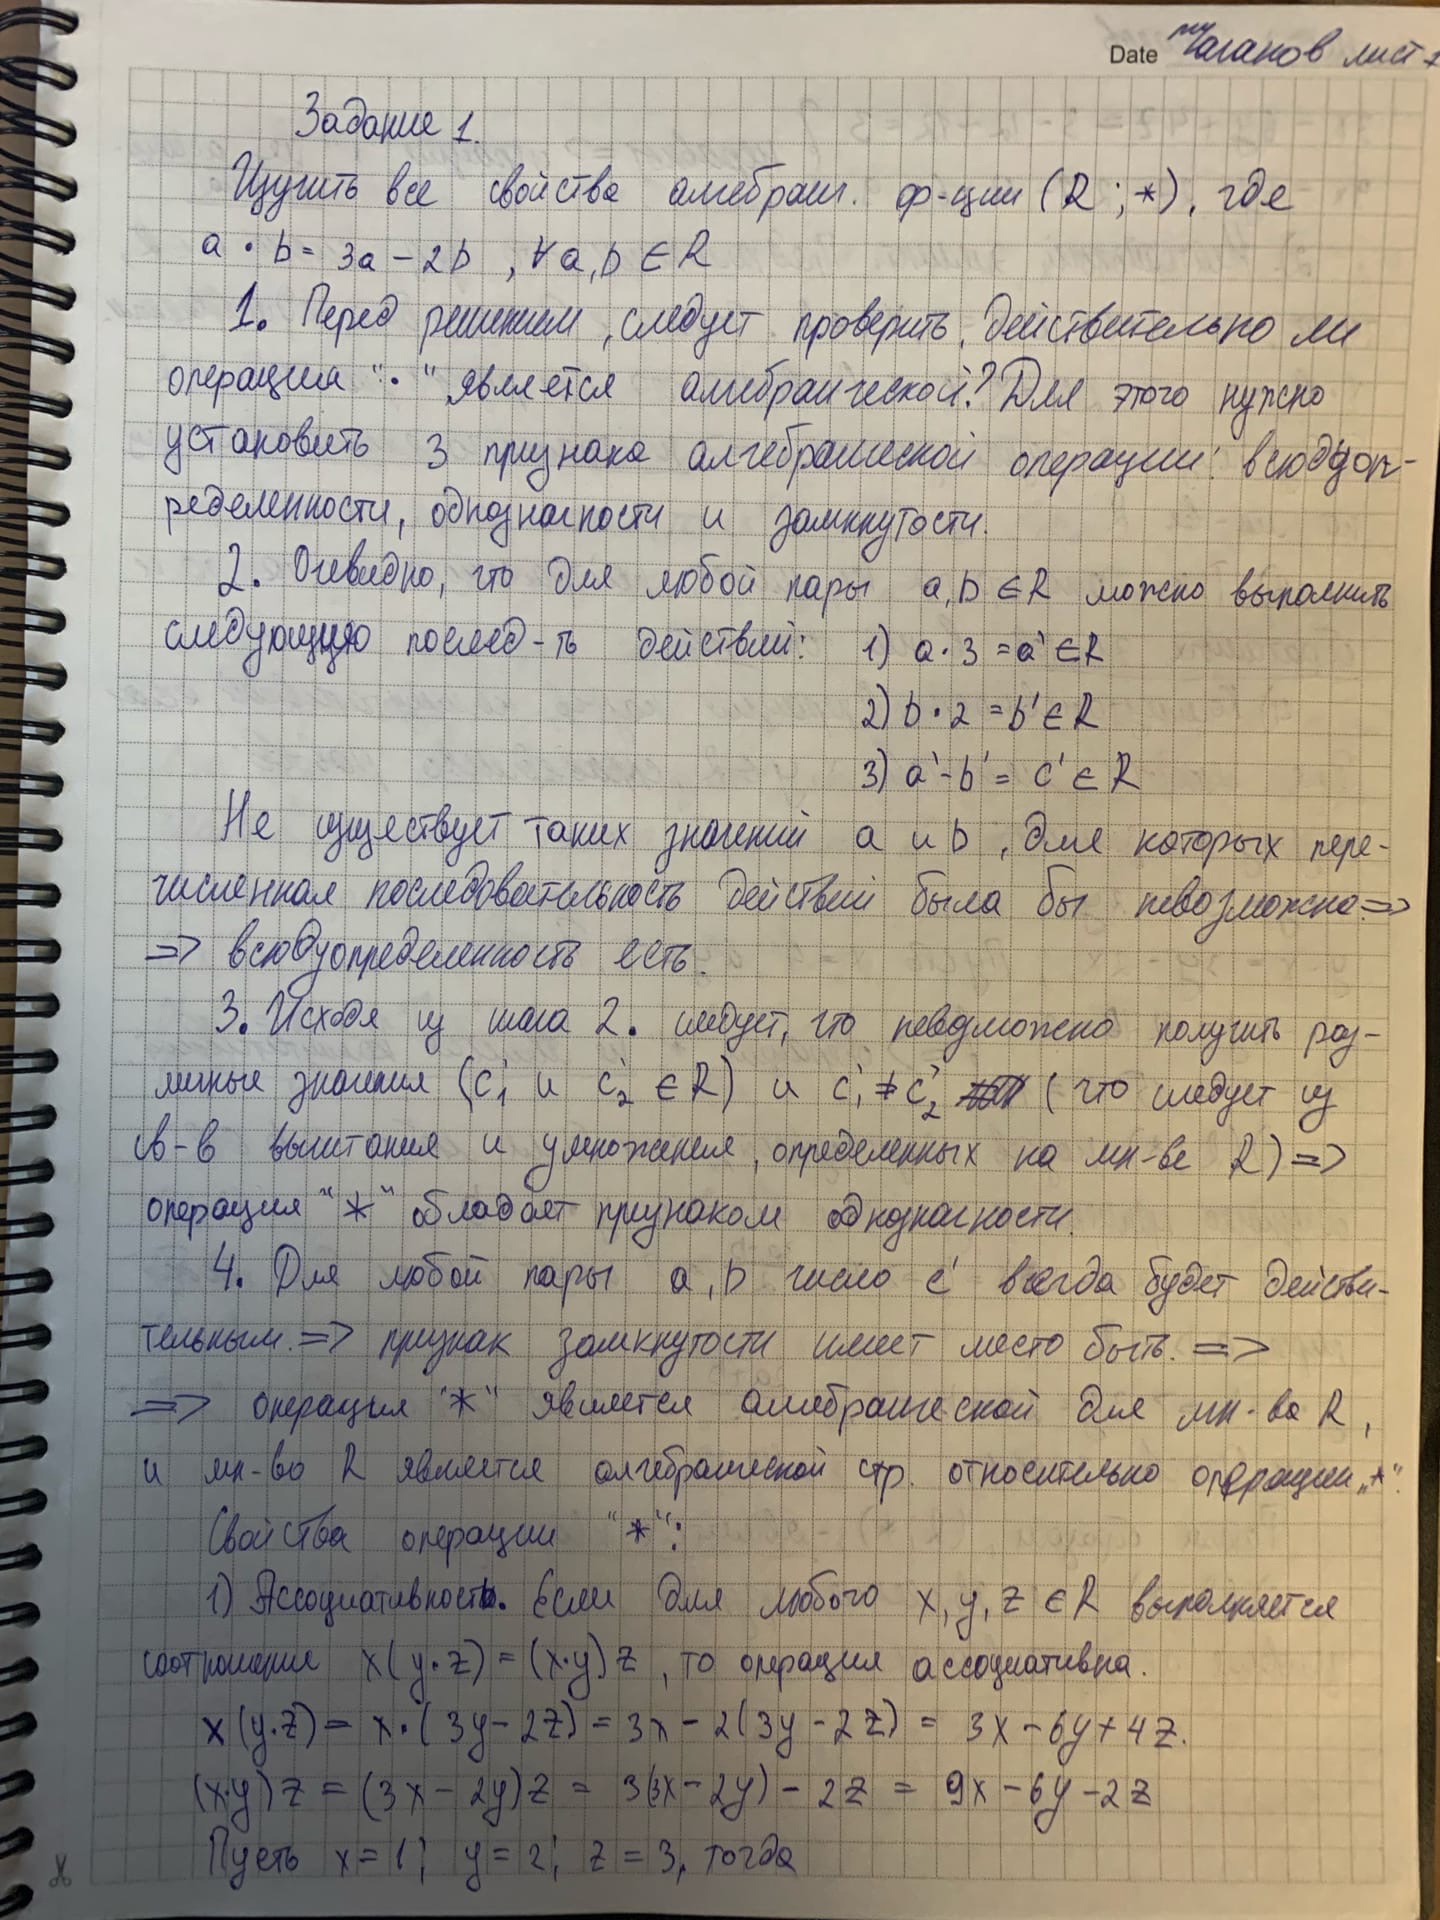 Date Чаганов лист 1
Задание 1.
Изучить все свойства алгебраич. ф-ции (R ; *), где
a • b = 3a - 2b , ∀ a, b ∈ R
1. Перед решением, следует проверить, действительно ли
операция "•" является алгебраической? Для этого нужно
установить 3 признака алгебраической операции: всюдуоп-
ределенности, однозначности и замкнутости.
2. Очевидно, что для любой пары a, b ∈ R можно выполнить
следующую послед-ть действий: 1) a • 3 = a' ∈ R
2) b • 2 = b' ∈ R
3) a' - b' = c' ∈ R
Не существует таких значений a и b, для которых пере-
численная последовательность действий была бы невозможна =>
=> всюдуопределенность есть.
3. Исходя из шага 2. следует, что невозможно получить раз-
личные значения (c'₁ и c'₂ ∈ R) и c'₁ ≠ c'₂ (что следует из
св-в вычитания и умножения, определенных на мн-ве R) =>
операция "*" обладает признаком однозначности.
4. Для любой пары a, b число c' всегда будет действи-
тельным. => признак замкнутости имеет место быть. =>
=> операция "*" является алгебраической для мн-ва R,
и мн-во R является алгебраической стр. относительно операции „*".
Свойства операции "*":
1) Ассоциативность. Если для любого x, y, z ∈ R выполняется
соотношение x(y•z) = (x•y)z, то операция ассоциативна.
x(y•z) = x•(3y - 2z) = 3x - 2(3y - 2z) = 3x - 6y + 4z.
(x•y)z = (3x - 2y)z = 3(3x - 2y) - 2z = 9x - 6y - 2z
Пусть x = 1; y = 2; z = 3, тогда